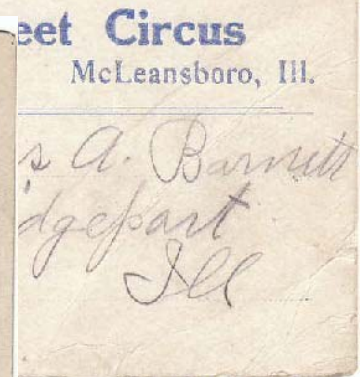 eet Circus
McLeansboro, Ill.
s A. Barnett
dgeport
Ill